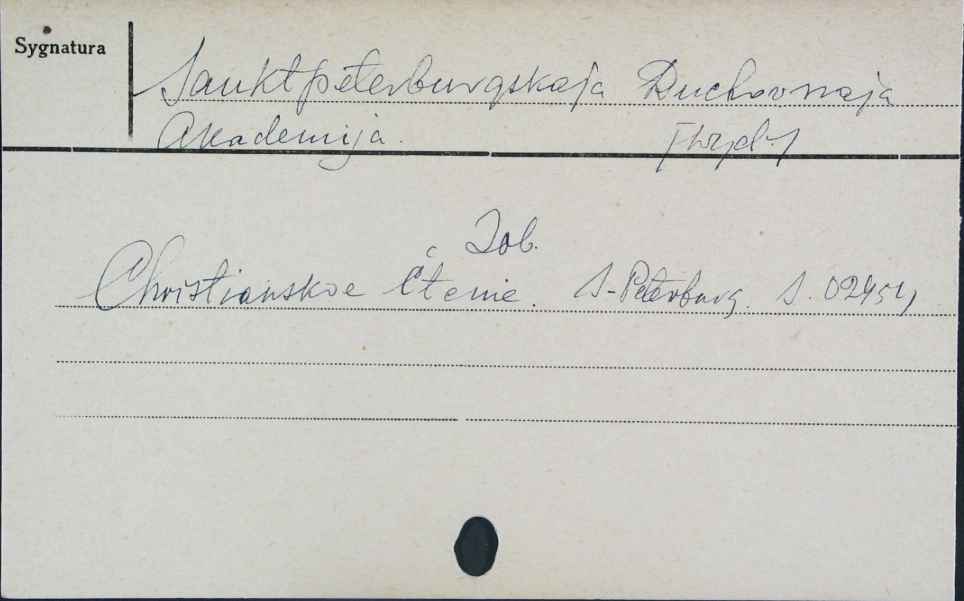 Sygnatura
Sanktpeterburgskaja Duchovnaja
Akademija. [wyd.]
Zob.
Christianskoe Čtenie. S-Peterburg. S. 02454